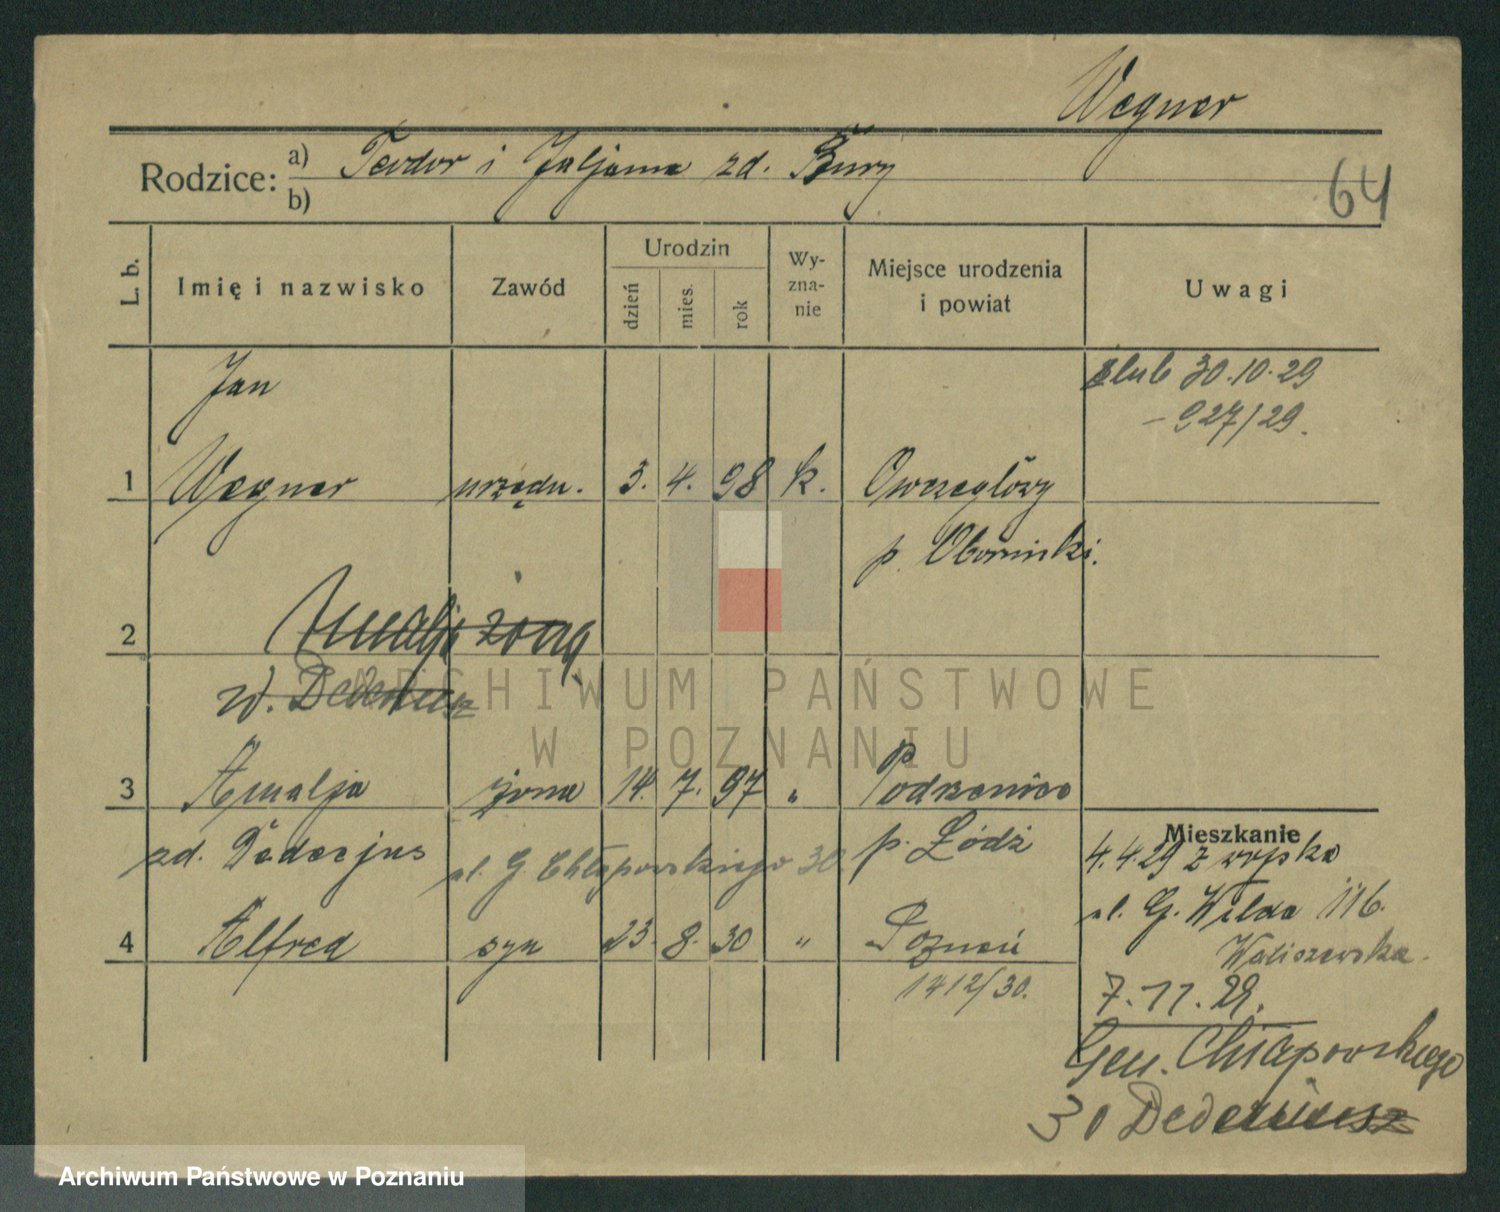 Wegner
Rodzice: a) Teodor i Juljanna zd. Bury
b)
64
L. b. Imię i nazwisko Zawód Urodzin dzień mies. rok Wyznanie Miejsce urodzenia i powiat Uwagi
Jan ślub 30.10.29
- 927/29.
1 Wegner urzędn. 3. 4. 98 k. Owczegłowy
p. Obornicki.
2 Amalja żona
zd.
3 Amalja żona 14. 7. 97 " Podzenice
zd. Dedecjus ul. G. Chłapowskiego 30. p. Łódź
4 Alfred syn 23. 8. 30 " Poznań
1412/30.
Mieszkanie
4.4.29 z wojska
ul. G. Wilda 116.
Waliszewska.
7.11.29.
Gen. Chłapowskiego
30
ARCHIWUM PAŃSTWOWE
W POZNANIU
Archiwum Państwowe w Poznaniu